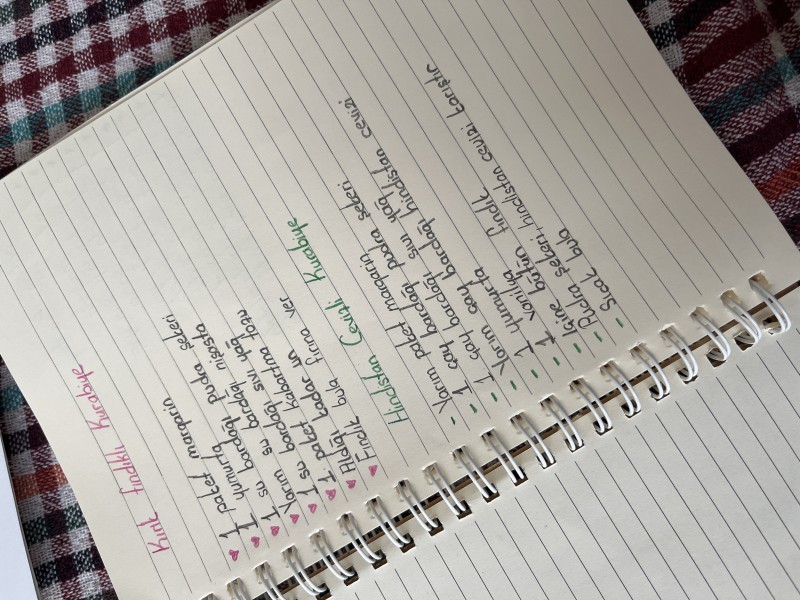 Kırık fındıklı Kurabiye
1 paket margarin
1 yumurta
1 su bardağı pudra şekeri
Yarım su bardağı nişasta
1 su bardağı sıvı yağ
1 paket kabartma tozu
Aldığı kadar un
Fındık bula fırına ver
Hindistan Cevizli Kurabiye
Yarım paket margarin
1 çay bardağı pudra şekeri
1 çay bardağı sıvı yağ
Yarım çay bardağı hindistan cevizi
1 yumurta
1 vaniya
İçine bütün fındık
Pudra şekeri, hindistan cevizi karıştır
Sıcak bula